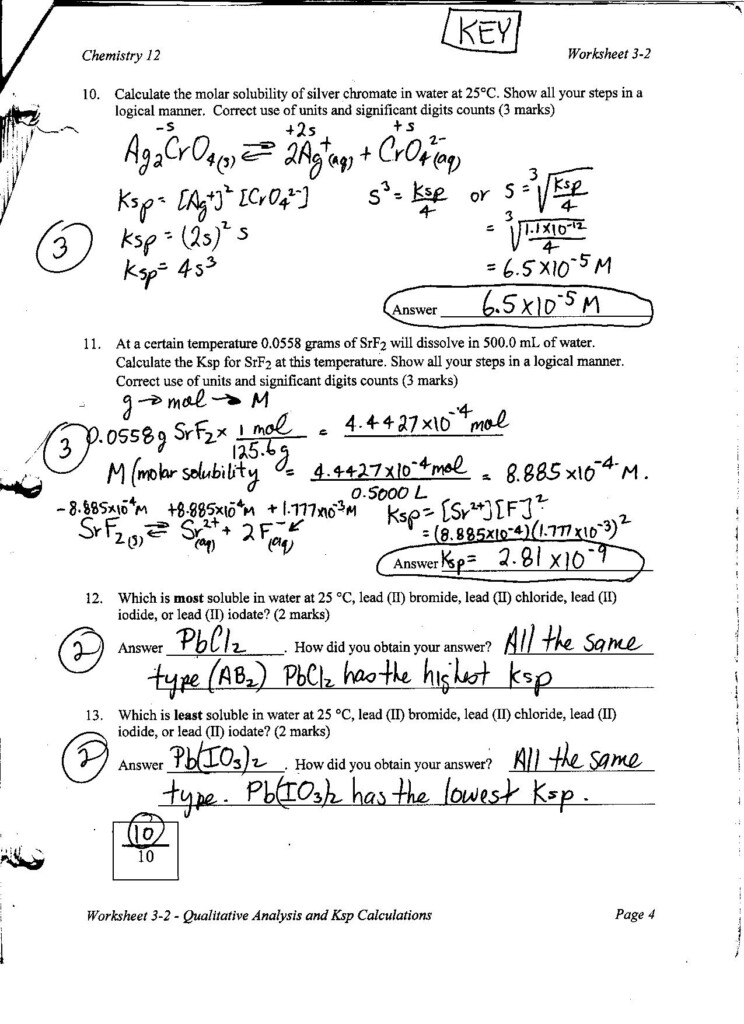 KEY
Chemistry 12 Worksheet 3-2
10. Calculate the molar solubility of silver chromate in water at 25°C. Show all your steps in a
logical manner. Correct use of units and significant digits counts (3 marks)
-s +2s +s
Ag₂CrO₄(s) ⇌ 2Ag⁺(aq) + CrO₄²⁻(aq)
Ksp = [Ag⁺]² [CrO₄²⁻] S³ = Ksp/4 or S = ³√(Ksp/4)
③ Ksp = (2s)² s = ³√(1.1×10⁻¹²/4)
Ksp = 4s³ = 6.5×10⁻⁵ M
Answer 6.5×10⁻⁵ M
11. At a certain temperature 0.0558 grams of SrF₂ will dissolve in 500.0 mL of water.
Calculate the Ksp for SrF₂ at this temperature. Show all your steps in a logical manner.
Correct use of units and significant digits counts (3 marks)
g → mol → M
③ 0.0558g SrF₂ × 1 mol/125.6g = 4.4427×10⁻⁴ mol
M (molar solubility = 4.4427×10⁻⁴ mol/0.5000 L = 8.885×10⁻⁴ M.
-8.885×10⁻⁴M +8.885×10⁻⁴M +1.777×10⁻³M Ksp = [Sr²⁺][F⁻]²
SrF₂(s) ⇌ Sr²⁺(aq) + 2F⁻(aq) = (8.885×10⁻⁴)(1.777×10⁻³)²
Answer Ksp = 2.81×10⁻⁹
12. Which is most soluble in water at 25 °C, lead (II) bromide, lead (II) chloride, lead (II)
iodide, or lead (II) iodate? (2 marks)
② Answer PbCl₂. How did you obtain your answer? All the same
type (AB₂) PbCl₂ has the highest Ksp
13. Which is least soluble in water at 25 °C, lead (II) bromide, lead (II) chloride, lead (II)
iodide, or lead (II) iodate? (2 marks)
② Answer Pb(IO₃)₂. How did you obtain your answer? All the same
type. Pb(IO₃)₂ has the lowest Ksp.
10
10
Worksheet 3-2 - Qualitative Analysis and Ksp Calculations Page 4